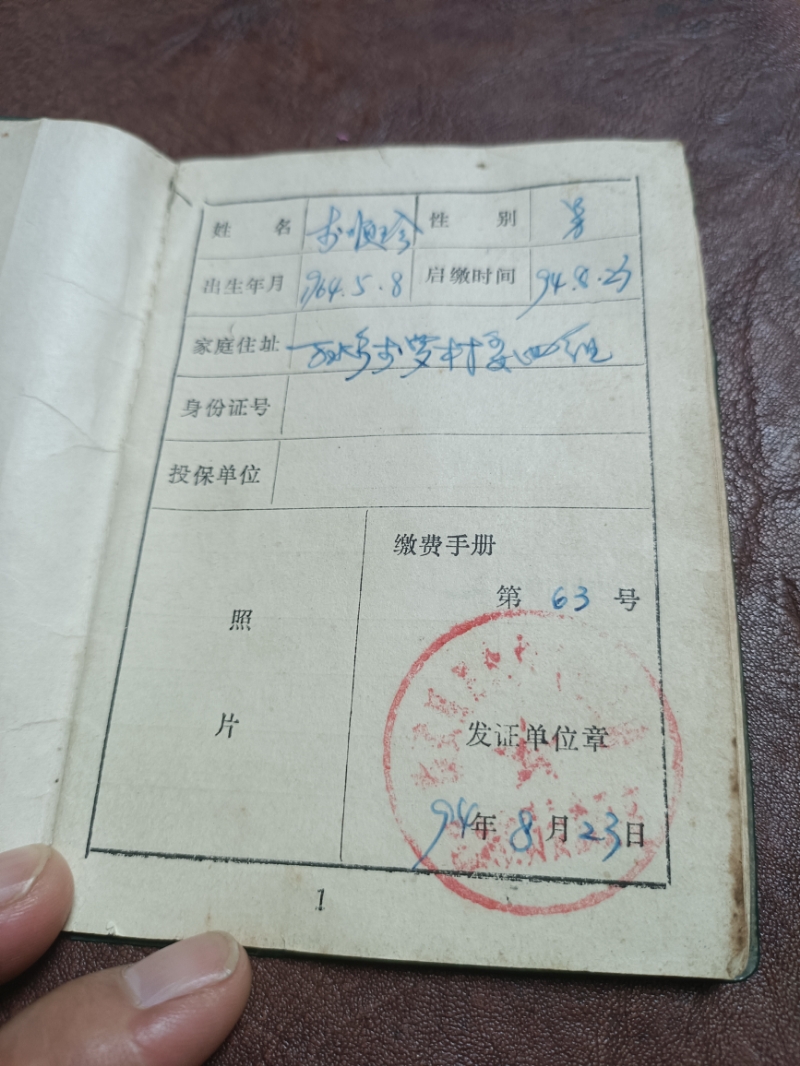 姓 名 性 别 男
出生年月 1964.5.8 启缴时间 94.8.23
家庭住址 村委四组
身份证号
投保单位
照
片
缴费手册
第 63 号
发证单位章
94年8月23日
1